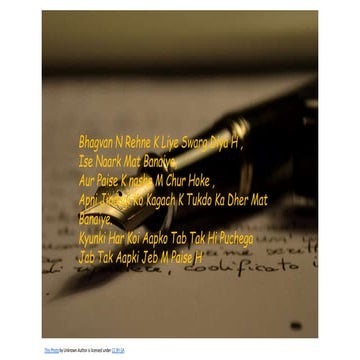 Bhagvan N Rehne K Liye Swarg Diya H ,
Ise Naark Mat Banaiye,
Aur Paise K nashe M Chur Hoke ,
Apni Ko Kagach K Tukdo Ka Dher Mat
Banaiye,
Kyunki Har Koi Aapko Tab Tak Hi Puchega
Jab Tak Aapki Jeb M Paise H
This Photo by Unknown Author is licensed under CC BY-SA